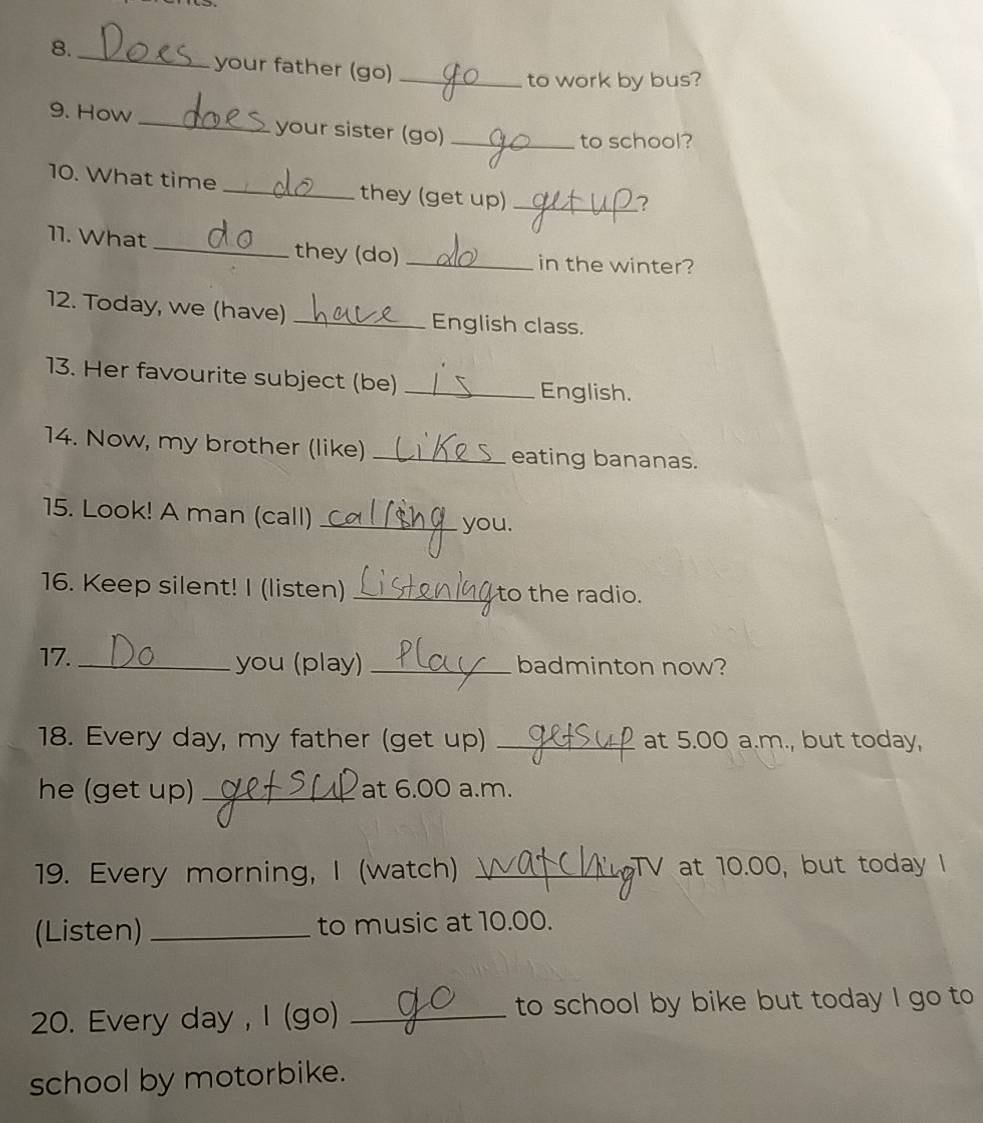 8. Does your father (go) go to work by bus?
9. How does your sister (go) go to school?
10. What time do they (get up) get up?
11. What do they (do) do in the winter?
12. Today, we (have) have English class.
13. Her favourite subject (be) is English.
14. Now, my brother (like) Likes eating bananas.
15. Look! A man (call) calling you.
16. Keep silent! I (listen) Listening to the radio.
17. Do you (play) Play badminton now?
18. Every day, my father (get up) gets up at 5.00 a.m., but today,
he (get up) gets up at 6.00 a.m.
19. Every morning, I (watch) watching TV at 10.00, but today I
(Listen) ____________ to music at 10.00.
20. Every day , I (go) go to school by bike but today I go to
school by motorbike.